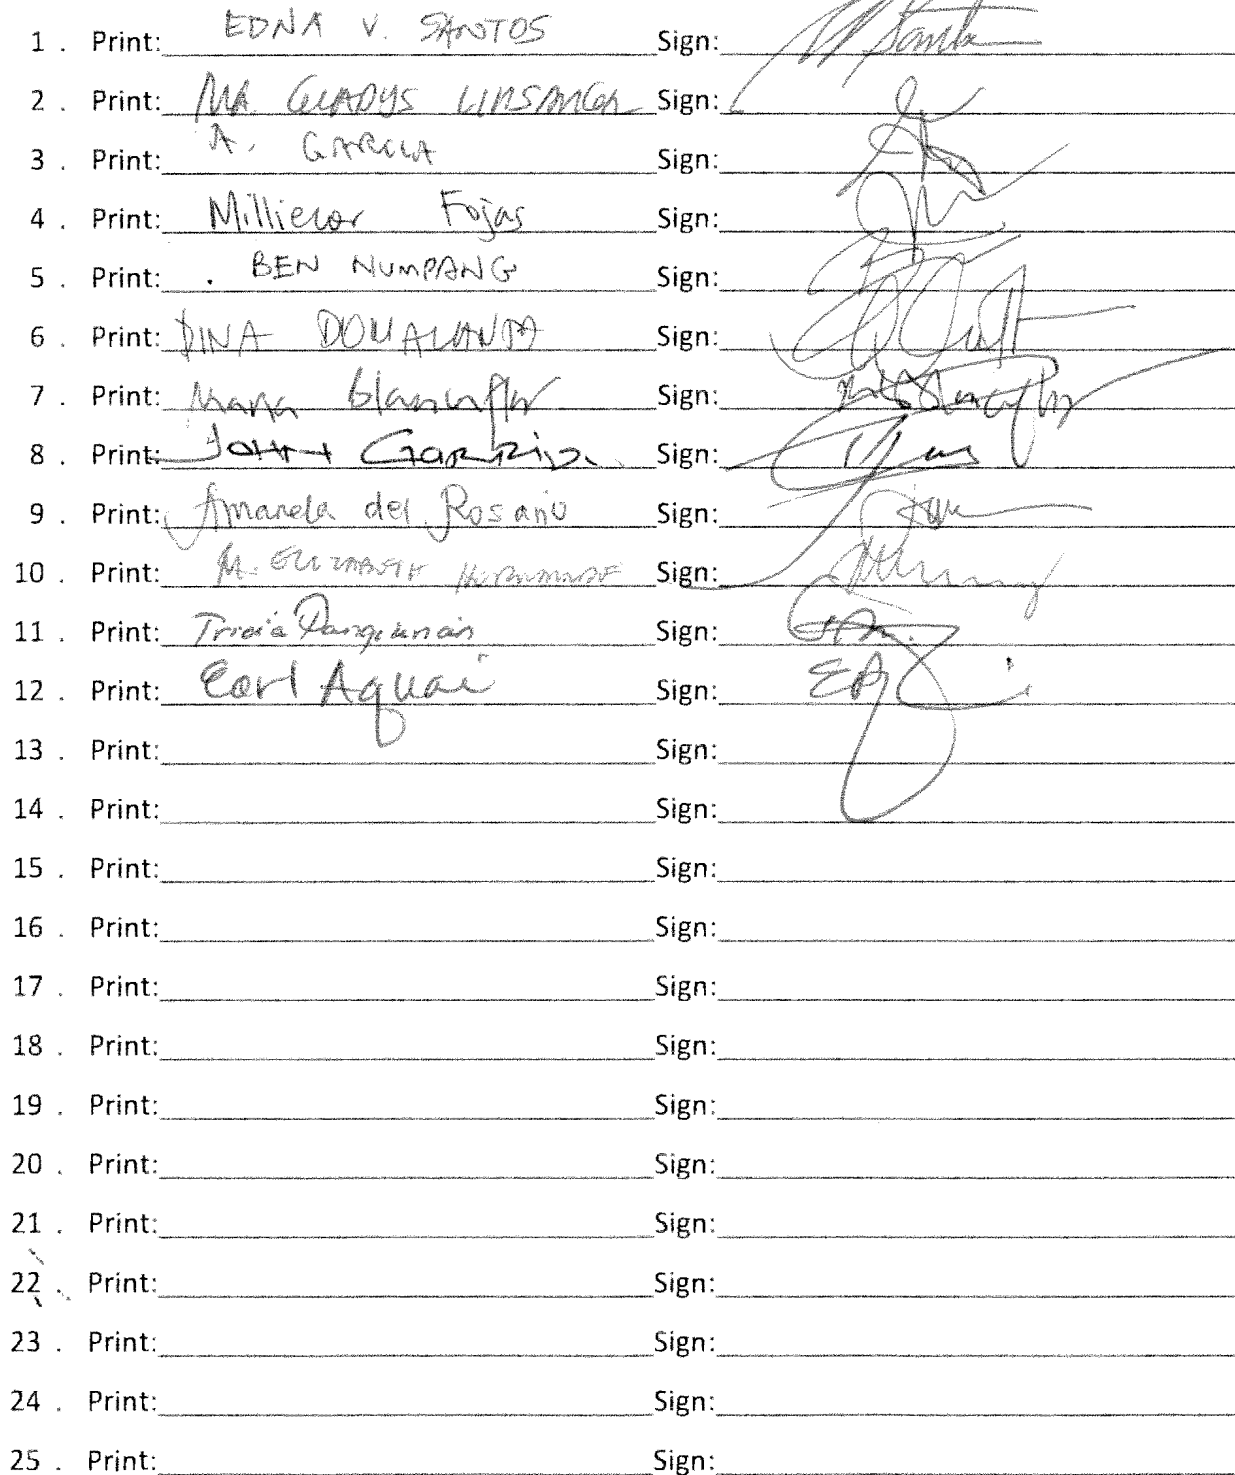 1 . Print: EDNA V. SANTOS Sign:
2 . Print: MA. GLADYS Sign:
3 . Print: A. GARCIA Sign:
4 . Print: Milliecor Fojas Sign:
5 . Print: . BEN NUMPANG Sign:
6 . Print: DINA Sign:
7 . Print: Maria Blancaflor Sign:
8 . Print: JOHN Sign:
9 . Print: Amarela del Rosario Sign:
10 . Print: M. ELIZABETH Sign:
11 . Print: Tricia Panganinan Sign:
12 . Print: Earl Aquai Sign:
13 . Print: Sign:
14 . Print: Sign:
15 . Print: Sign:
16 . Print: Sign:
17 . Print: Sign:
18 . Print: Sign:
19 . Print: Sign:
20 . Print: Sign:
21 . Print: Sign:
22 . Print: Sign:
23 . Print: Sign:
24 . Print: Sign:
25 . Print: Sign: